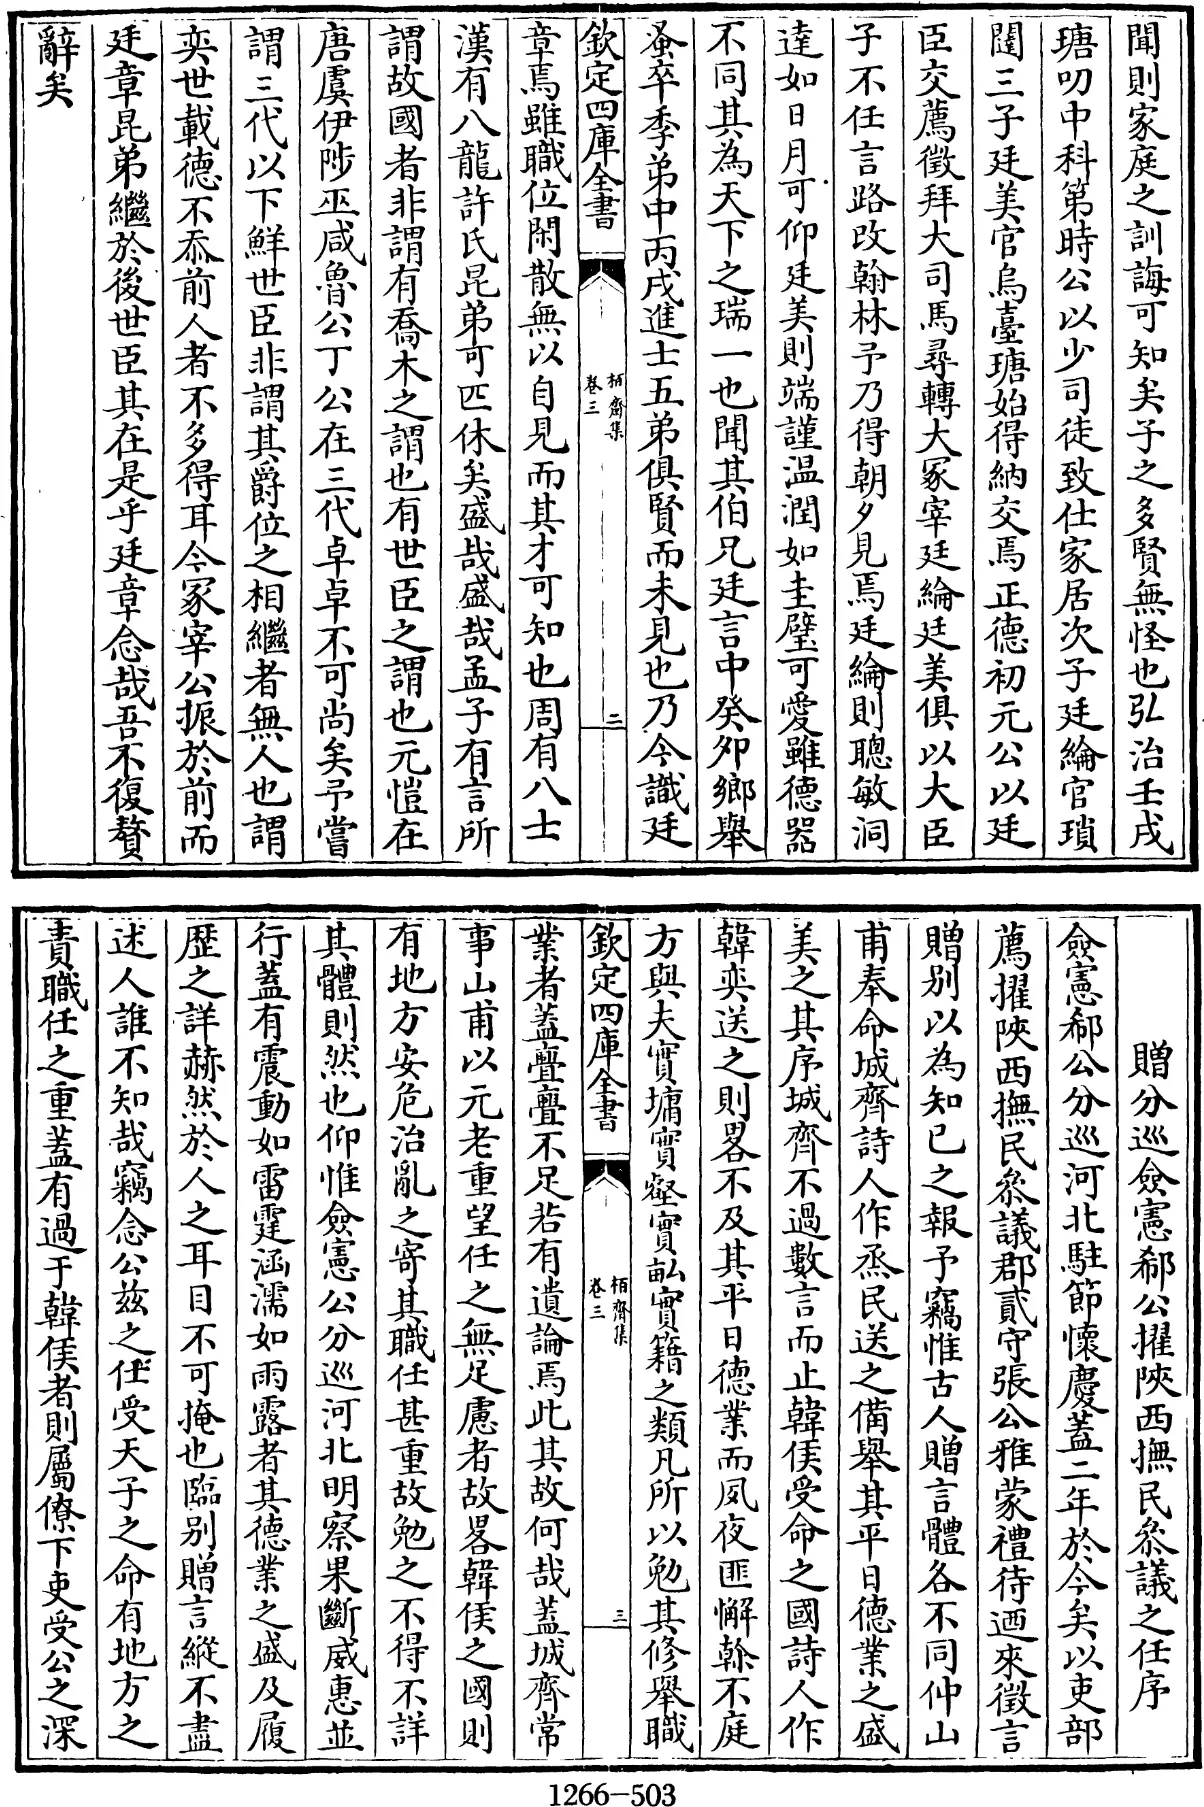 聞則家庭之訓誨可知矣子之多賢無怪也弘治壬戌
瑭叨中科第時公以少司徒致仕家居次子廷綸官瑣
闥三子廷美官烏臺瑭始得納交焉正德初元公以廷
臣交薦徵拜大司馬尋轉大冢宰廷綸廷美俱以大臣
子不任言路改翰林予乃得朝夕見焉廷綸則聰敏洞
達如日月可仰廷美則端謹温潤如圭璧可愛雖德器
不同其為天下之瑞一也聞其伯兄廷言中癸夘鄉舉
蚤卒季弟中丙戌進士五弟俱賢而未見也乃今識廷
欽定四庫全書
栢齋集
卷三
二
章焉雖職位閑散無以自見而其才可知也周有八士
漢有八龍許氏昆弟可匹休矣盛哉盛哉孟子有言所
謂故國者非謂有喬木之謂也有世臣之謂也元愷在
唐虞伊陟巫咸魯公丁公在三代卓卓不可尚矣予嘗
謂三代以下鮮世臣非謂其爵位之相繼者無人也謂
奕世載德不忝前人者不多得耳今冢宰公振於前而
廷章昆弟繼於後世臣其在是乎廷章念哉吾不復贅
辭矣
贈分巡僉憲郗公擢陜西撫民叅議之任序
僉憲郗公分巡河北駐節懷慶蓋二年於今矣以吏部
薦擢陜西撫民叅議郡貳守張公雅蒙禮待迺來徵言
贈别以為知已之報予竊惟古人贈言體各不同仲山
甫奉命城齊詩人作烝民送之備舉其平日德業之盛
美之其序城齊不過數言而止韓侯受命之國詩人作
韓奕送之則畧不及其平日德業而夙夜匪懈榦不庭
方與夫實墉實壑實畝實籍之類凡所以勉其修舉職
欽定四庫全書
栢齋集
卷三
三
業者蓋亹亹不足若有遺論焉此其故何哉蓋城齊常
事山甫以元老重望任之無足慮者故畧韓侯之國則
有地方安危治亂之寄其職任甚重故勉之不得不詳
其體則然也仰惟僉憲公分巡河北明察果斷威惠並
行蓋有震動如雷霆涵濡如雨露者其德業之盛及履
歴之詳赫然於人之耳目不可掩也臨别贈言縱不盡
述人誰不知哉竊念公兹之任受天子之命有地方之
責職任之重蓋有過于韓侯者則屬僚下吏受公之深
1266-503